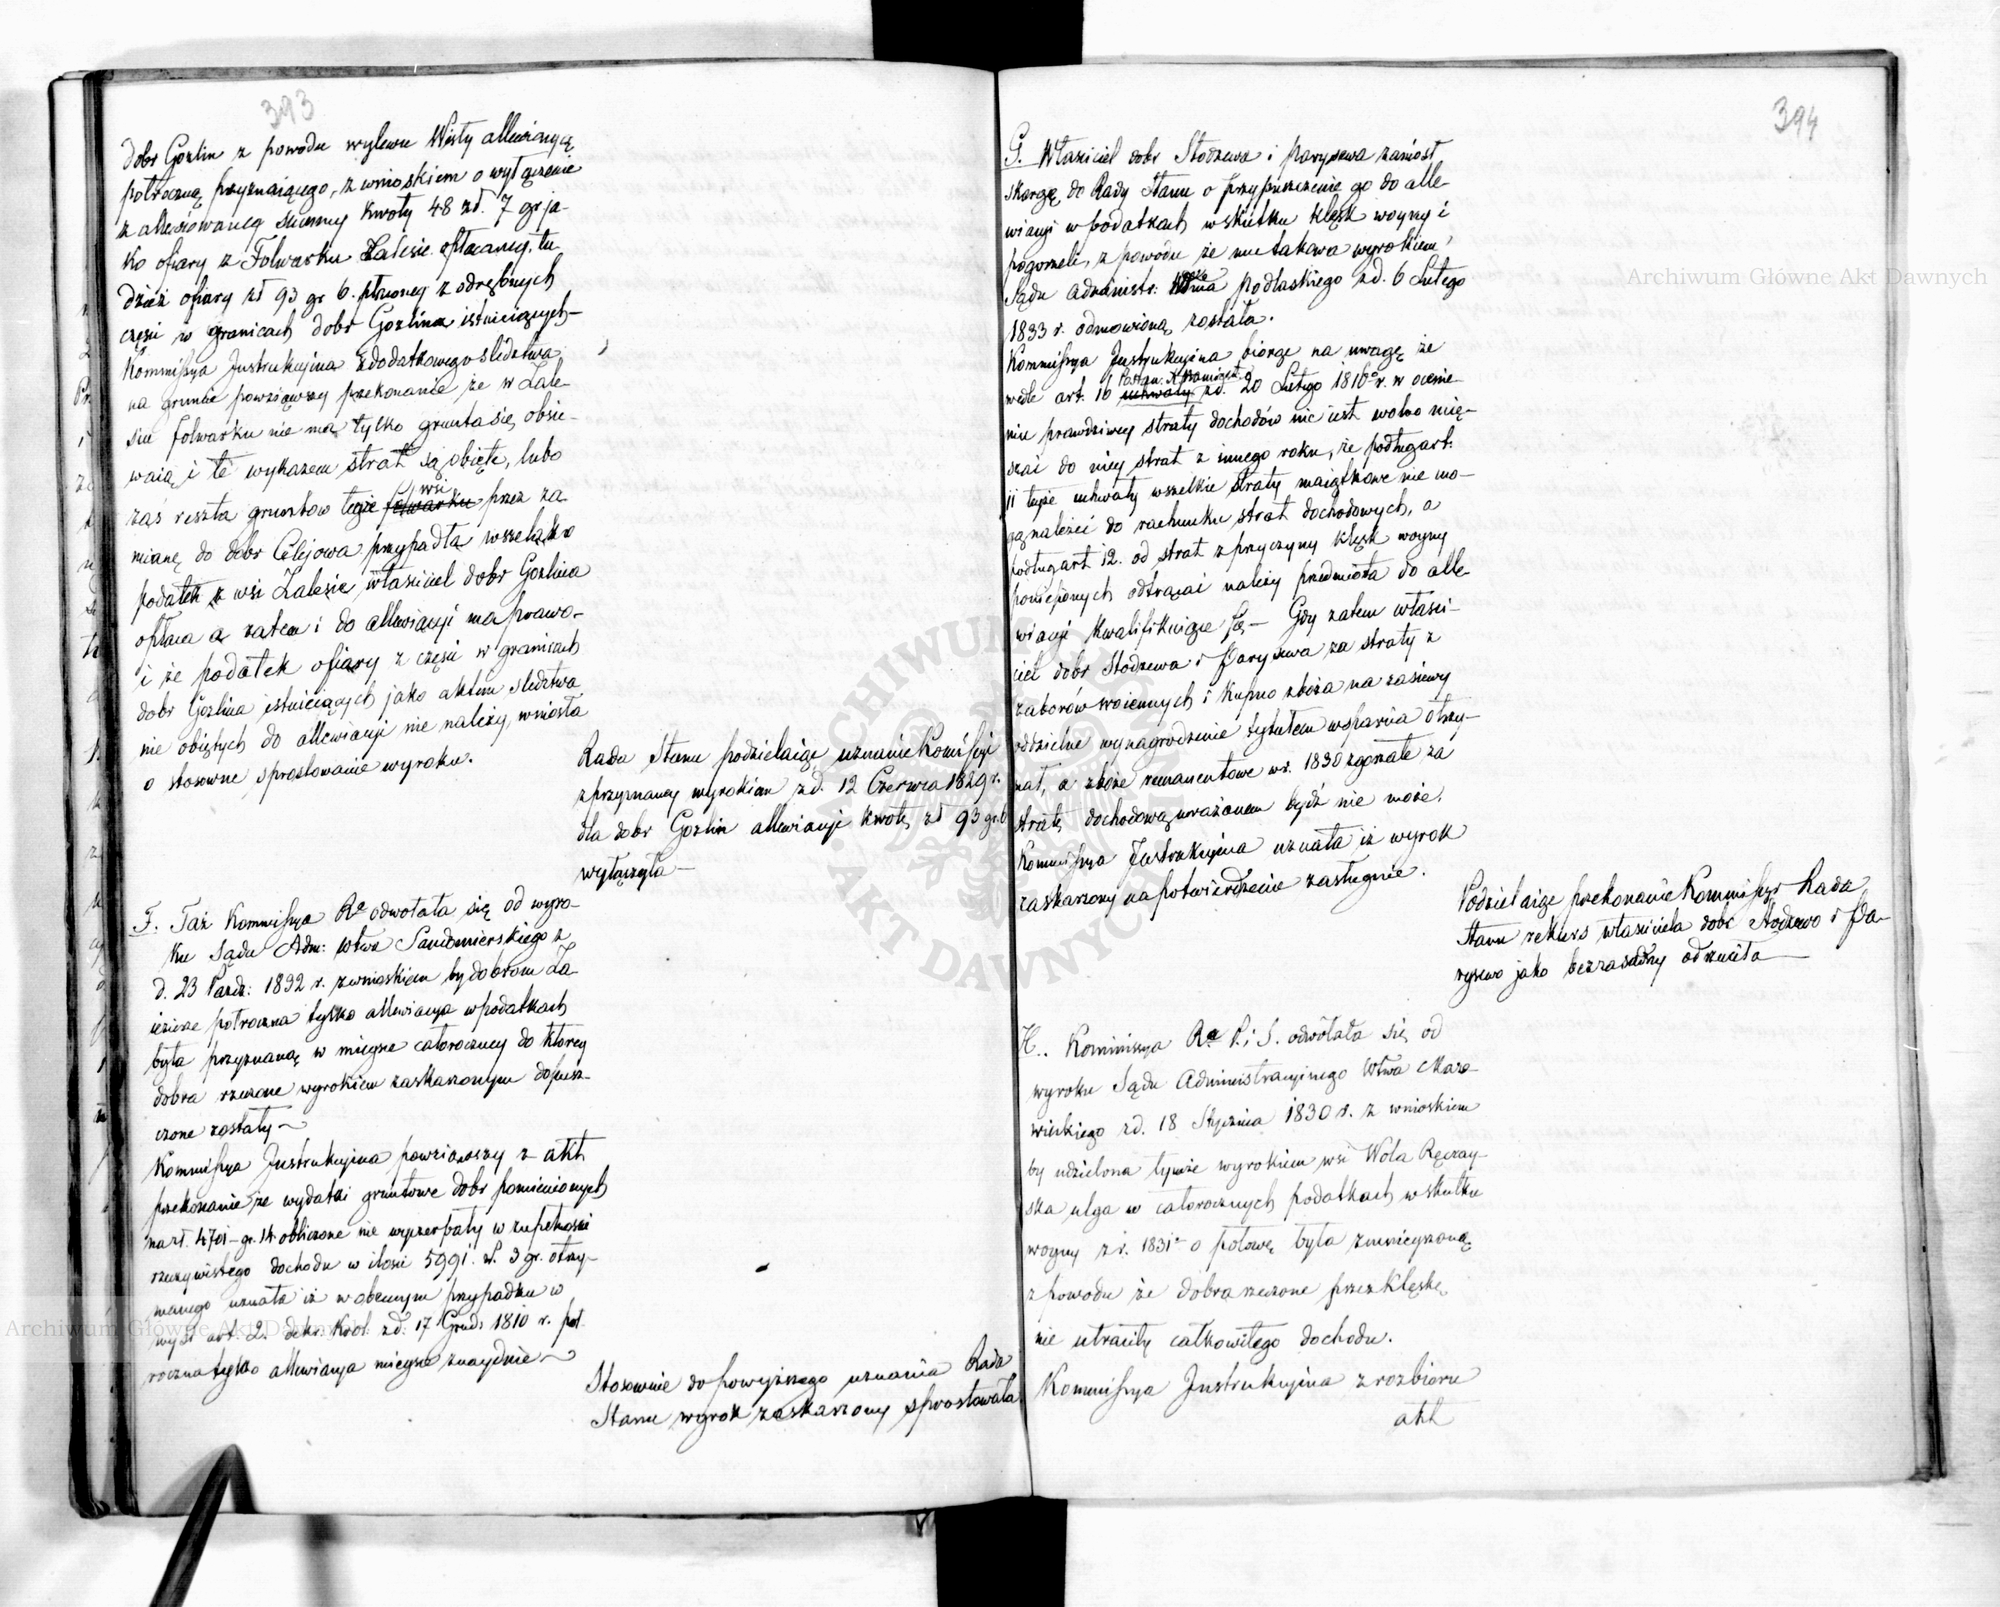 393
dobr Gozlin z powodu wylewu Wisły allewiacyą
półroczną przyznaiącego, z wnioskiem o wyłączenie
z allewiowaney summy kwoty 48 zł. 7 gr ja-
ko ofiary z Folwarku Zalesie opłacaney, tu-
dzież ofiary zł 93 gr 6. płaconey z odrębnych
części w granicach dobr Gozlina istnieiących –
Kommissya Instrukcyina z dodatkowego śledztwa
na gruncie powziąwszy przekonanie że w Zale-
siu folwarku nie ma, tylko grunta się obsie-
waią i te wykazem strat są obięte, lubo
zaś reszta gruntów teyże folwarku wsi przez za
mianę do dobr Celejowa przypadła wszelako
podatek z wsi Zalesie właściciel dobr Gozlina
opłaca a zatem i do allewiacyi ma prawo –
i że podatek ofiary z części w granicach
dobr Gozlina istnieiących jako aktem śledztwa
nie obiętych do allewiacyi nie należy, wniosła
o stosowne sprostowanie wyroku.
Rada Stanu podzielaiąc uznanie Kommissyi
z przyznaney wyrokiem z d. 12 Czerwca 1829 r.
dla dobr Gozlin allewiacyi kwotę zł 93 gr. 6
wyłączyła –
F. Taż Kommissya Ra odwołała się od wyro-
ku Sądu Adm: wtwa Sandomierskiego z
d. 23 Paźdz: 1832 r. z wnioskiem by dobrom Za
ieziorze półroczna tylko allewiacya w podatkach
była przyznaną w mieysce całoroczney do którey
dobra rzeczone wyrokiem zaskarzonym dopusz-
czone zostały –
Kommissya Instrukcyina powziąwszy z akt
przekonanie że wydatki gruntowe dobr pomienionych
na zł. 4701 – gr. 14 obliczone nie wyczerpały w zupełności
rzeczywistego dochodu w ilości 5991. zł. 3 gr. otrzy-
manego uznała iż w obecnym przypadku w
myśl art. 2. dekr. Król. z d. 17 Grud: 1810 r. pół
roczna tylko allewiacya mieysce znayduie –
Stosownie do powyższego uznania Rada
Stanu wyrok zaskarzony sprostowała
394
G. Właściciel dobr Stodzewa i Parysewa zaniósł
skargę do Rady Stanu o przypuszczenie go do alle-
wiacyi w podatkach w skutku klęsk woyny i
pogorzeli, z powodu że mu takowa wyrokiem
Sądu Administr: Wdztwa Podlaskiego z d. 6 Lutego
1833 r. odmowioną została.
Kommissya Instrukcyina biorąc na uwagę że
wedle art. 16 uchwały z d. 20 Lutego 1816o r. w ocenie-
niu prawdziwey straty dochodów nie iest wolno mię-
szać do niey strat z innego roku, że podług art:
11 teyże uchwały wszelkie straty maiątkowe nie mo-
gą należeć do rachunku strat dochodowych, a
podług art. 12. od strat z przyczyny klęsk woyny
poniesionych odtrącać należy przedmiota do alle-
wiacyi kwalifikuiące się – Gdy zatem właści-
ciel dobr Stodzewa i Parysewa za straty z
zaborów woiennych i kupno zboża na zasiewy
oddzielne wynagrodzenie tytułem wsparcia otrzy-
mał, a zboże remanentowe w r. 1830 zgorzałe za
stratę dochodową uważanem bydź nie może.
Kommissya Instrukcyina uznała iż wyrok
zaskarzony na potwierdzenie zasługuie.
Podzielaiąc przekonanie Kommissyi Rada
Stanu rekurs właściciela dobr Stodzewo i Pa-
rysewo jako bezzasadny odrzuciła –
H.. Kommissya Ra P. i S. odwołała się od
wyroku Sądu Administracyinego Wtwa Mazo-
wieckiego z d. 18 Stycznia 1830 r. z wnioskiem
by udzielona tymże wyrokiem wsi Wola Ręczay-
ska ulga w całorocznych podatkach w skutku
woyny z r. 1831o o połowę była zmnieyszoną
z powodu że dobra rzeczone przez klęskę
nie utraciły całkowitego dochodu.
Kommissya Instrukcyina z rozbioru
akt
Archiwum Główne Akt Dawnych
Archiwum Główne Akt Dawnych
ARCHIWUM GŁÓWNE AKT DAWNYCH